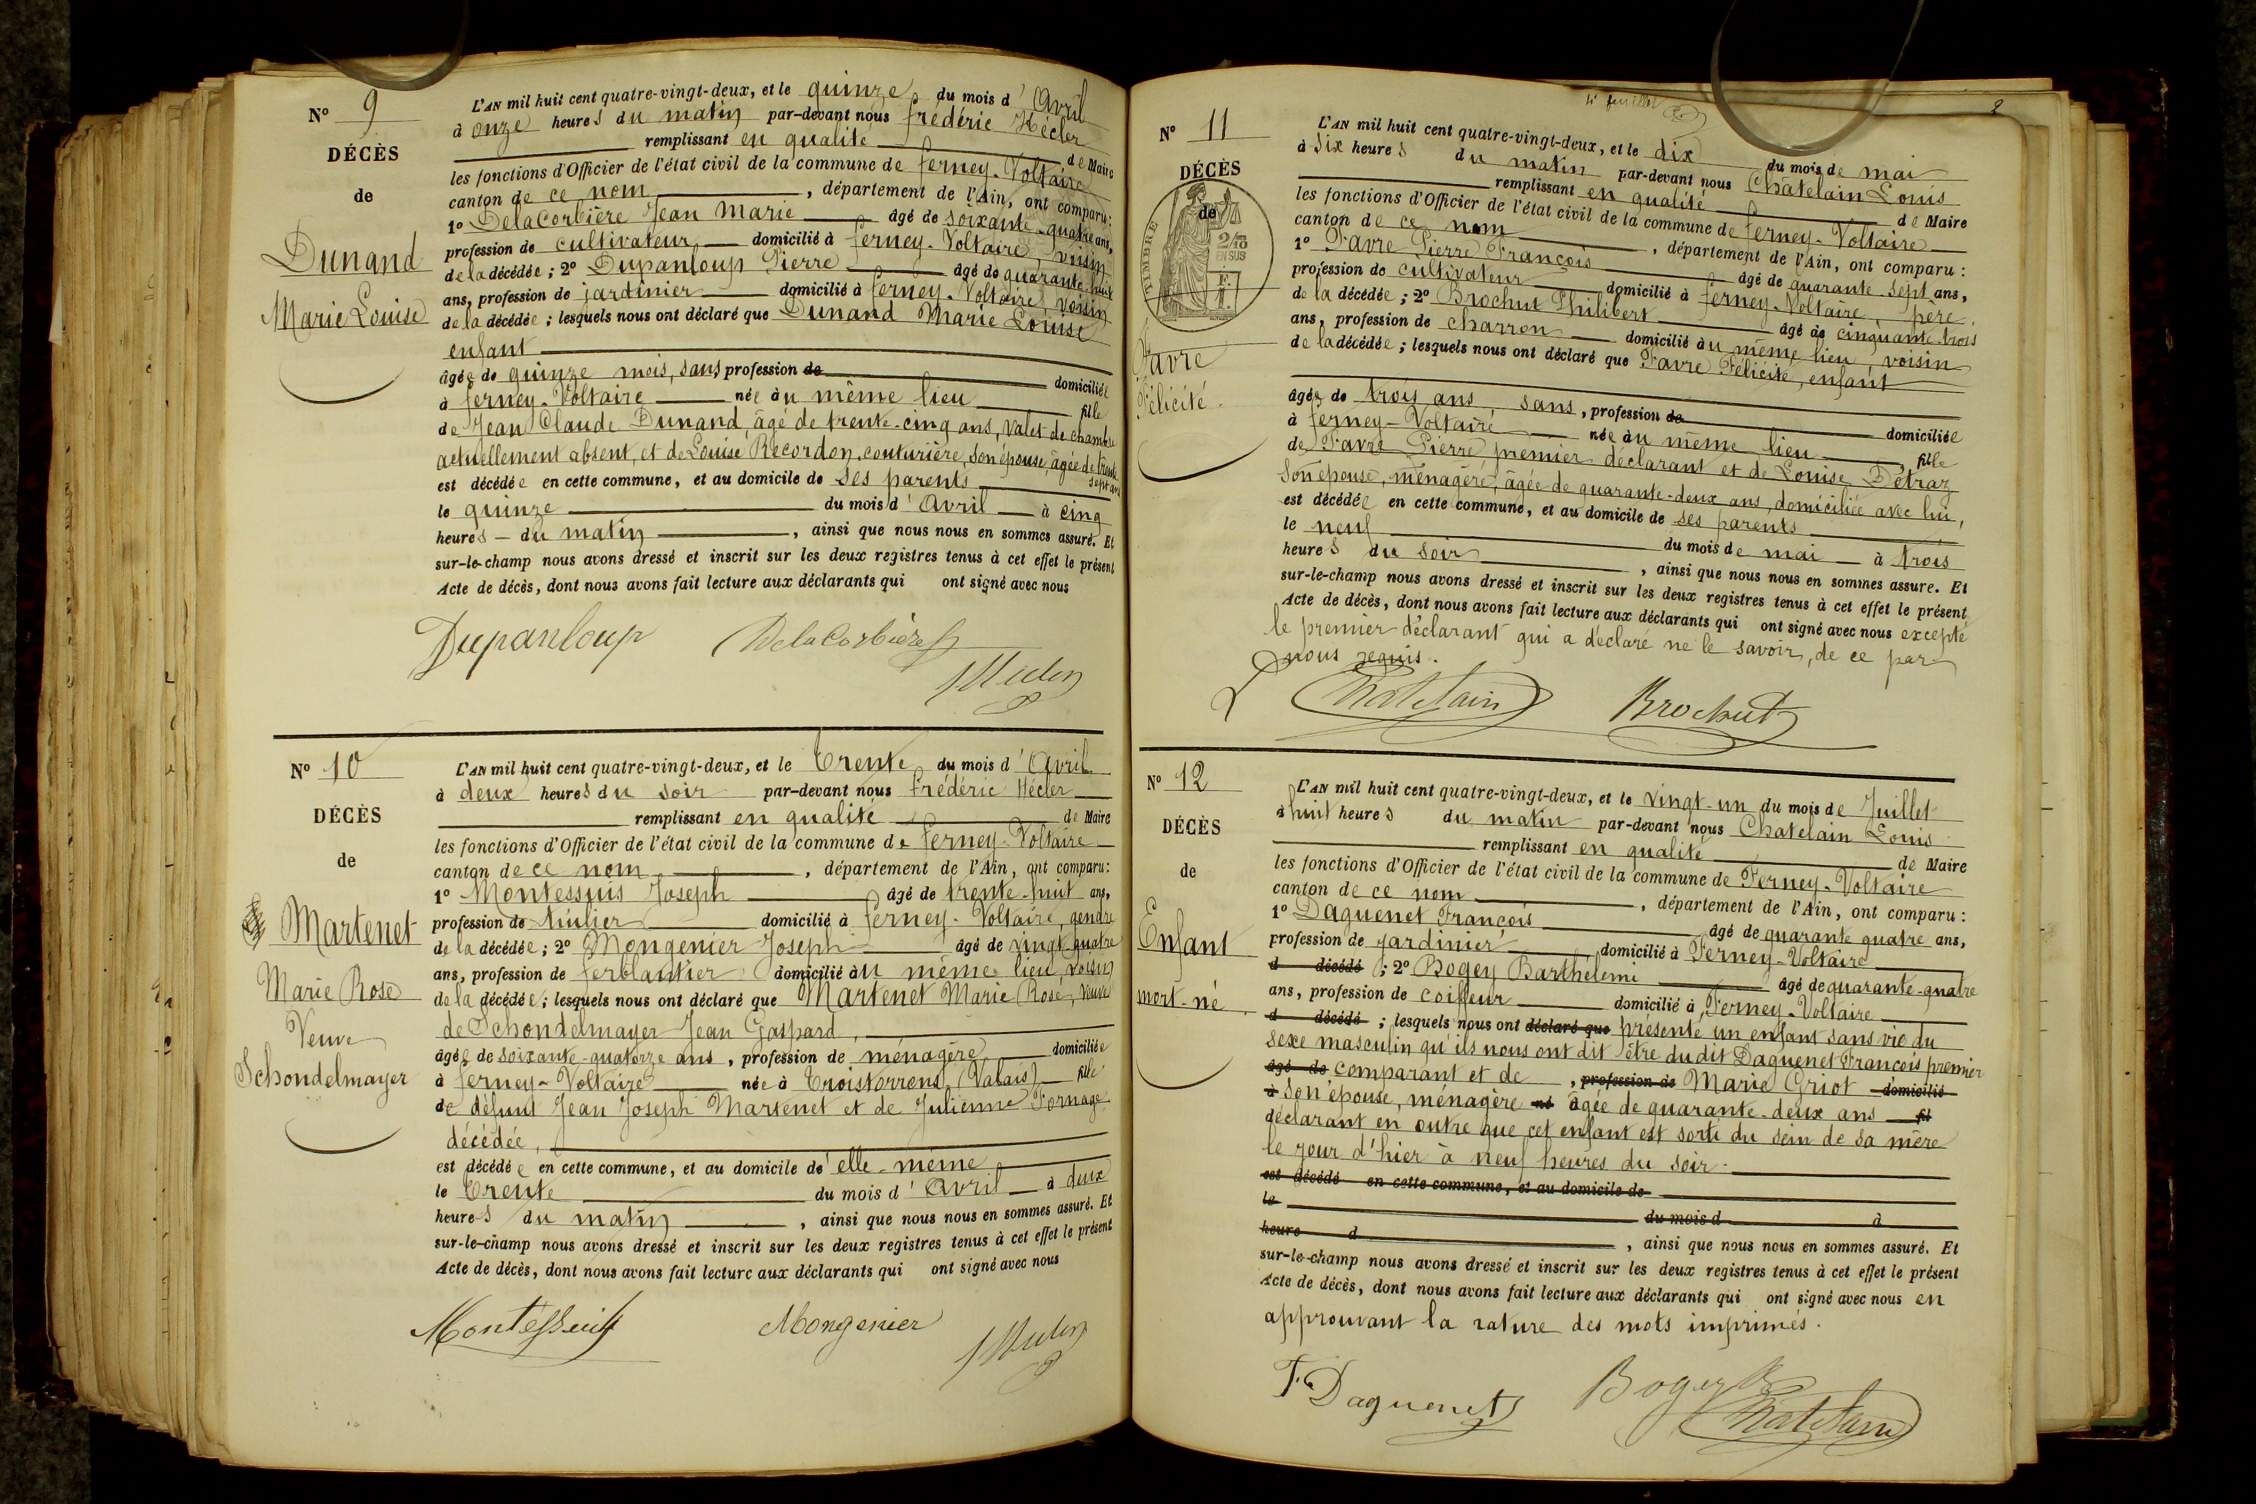 N° 9
DÉCÈS
de
Dunand
Marie Louise
L'AN mil huit cent quatre-vingt-deux, et le quinze du mois d'Avril
à onze heures du matin par-devant nous frédéric Hécler
remplissant en qualité de Maire
les fonctions d'Officier de l'état civil de la commune de ferney-Voltaire
canton de ce nom, département de l'Ain, ont comparu:
1° Delacorbière Jean Marie âgé de soixante-quatre ans,
profession de cultivateur domicilié à ferney-Voltaire, voisin
de la décédée; 2° Dupanloup Pierre âgé de quarante-huit
ans, profession de jardinier domicilié à ferney-Voltaire, voisin
de la décédée; lesquels nous ont déclaré que Dunand Marie Louise
enfant
âgée de quinze mois, sans profession de domiciliée
à ferney-Voltaire née au même lieu fille
de Jean Claude Dunand, âgé de trente-cinq ans, Valet de chambre
actuellement absent, et de Louise Recordon, couturière, son épouse, âgée de trente
sept ans
est décédée en cette commune, et au domicile de ses parents
le quinze du mois d'Avril à cinq
heures du matin, ainsi que nous nous en sommes assuré. Et
sur-le-champ nous avons dressé et inscrit sur les deux registres tenus à cet effet le présent
Acte de décès, dont nous avons fait lecture aux déclarants qui ont signé avec nous
Dupanloup Delacorbière
N° 10
DÉCÈS
de
Martenet
Marie Rose
Veuve
Schondelmayer
L'AN mil huit cent quatre-vingt-deux, et le trente du mois d'Avril
à deux heures du soir par-devant nous frédéric Hécler
remplissant en qualité de Maire
les fonctions d'Officier de l'état civil de la commune de ferney-Voltaire
canton de ce nom, département de l'Ain, ont comparu:
1° Montessuis Joseph âgé de trente-huit ans,
profession de tuilier domicilié à ferney-Voltaire, gendre
de la décédée; 2° Mongenier Joseph âgé de vingt-quatre
ans, profession de ferblantier domicilié au même lieu, voisin
de la décédée; lesquels nous ont déclaré que Martenet Marie Rose, Veuve
de Schondelmayer Jean Gaspard,
âgée de soixante-quatorze ans, profession de ménagère domiciliée
à ferney-Voltaire née à Troistorrens (Valais) fille
de défunt Jean Joseph Martenet et de Julienne Fornage
décédée,
est décédée en cette commune, et au domicile de elle-même
le trente du mois d'Avril à deux
heures du matin, ainsi que nous nous en sommes assuré. Et
sur-le-champ nous avons dressé et inscrit sur les deux registres tenus à cet effet le présent
Acte de décès, dont nous avons fait lecture aux déclarants qui ont signé avec nous
Montessuis Mongenier
N° 11
DÉCÈS
de
TIMBRE
2/10
EN SUS
Favre
Félicité
L'AN mil huit cent quatre-vingt-deux, et le dix du mois de mai
à six heures du matin par-devant nous Chatelain Louis
remplissant en qualité de Maire
les fonctions d'Officier de l'état civil de la commune de ferney-Voltaire
canton de ce nom, département de l'Ain, ont comparu:
1° Favre Pierre François âgé de quarante-sept ans,
profession de cultivateur domicilié à ferney-Voltaire, père
de la décédée; 2° Brochut Philibert âgé de cinquante-trois
ans, profession de charron domicilié au même lieu, voisin
de la décédée; lesquels nous ont déclaré que Favre Félicité, enfant
âgée de trois ans, sans, profession de domiciliée
à ferney-Voltaire née au même lieu, fille
de Favre Pierre premier déclarant et de Louise Détraz
son épouse, ménagère, âgée de quarante-deux ans, domiciliée avec lui,
est décédée en cette commune, et au domicile de ses parents
le neuf du mois de mai à trois
heures du soir, ainsi que nous nous en sommes assuré. Et
sur-le-champ nous avons dressé et inscrit sur les deux registres tenus à cet effet le présent
Acte de décès, dont nous avons fait lecture aux déclarants qui ont signé avec nous excepté
le premier déclarant qui a déclaré ne le savoir, de ce par
nous requis.
Chatelain Brochut
N° 12
DÉCÈS
de
Enfant
mort-né
L'AN mil huit cent quatre-vingt-deux, et le vingt-un du mois de Juillet
à huit heures du matin par-devant nous Chatelain Louis
remplissant en qualité de Maire
les fonctions d'Officier de l'état civil de la commune de Ferney-Voltaire
canton de ce nom, département de l'Ain, ont comparu:
1° Daguenet François âgé de quarante quatre ans,
profession de jardinier domicilié à Ferney-Voltaire
d décédé; 2° Bogey Barthélemi âgé de quarante-quatre
ans, profession de coiffeur domicilié à Ferney-Voltaire
d décédé; lesquels nous ont déclaré que présenté un enfant sans vie du
sexe masculin qu'ils nous ont dit être dudit Daguenet François premier
âgé de comparant et de, profession de Marie Griot domicilié
à son épouse, ménagère né âgée de quarante-deux ans fil
déclarant en outre que cet enfant est sorti du sein de sa mère
le jour d'hier à neuf heures du soir.
est décédé en cette commune, et au domicile de
le du mois d à
heure d, ainsi que nous nous en sommes assuré. Et
sur-le-champ nous avons dressé et inscrit sur les deux registres tenus à cet effet le présent
Acte de décès, dont nous avons fait lecture aux déclarants qui ont signé avec nous en
approuvant la rature des mots imprimés.
F. Daguenet Bogey B
Chatelain